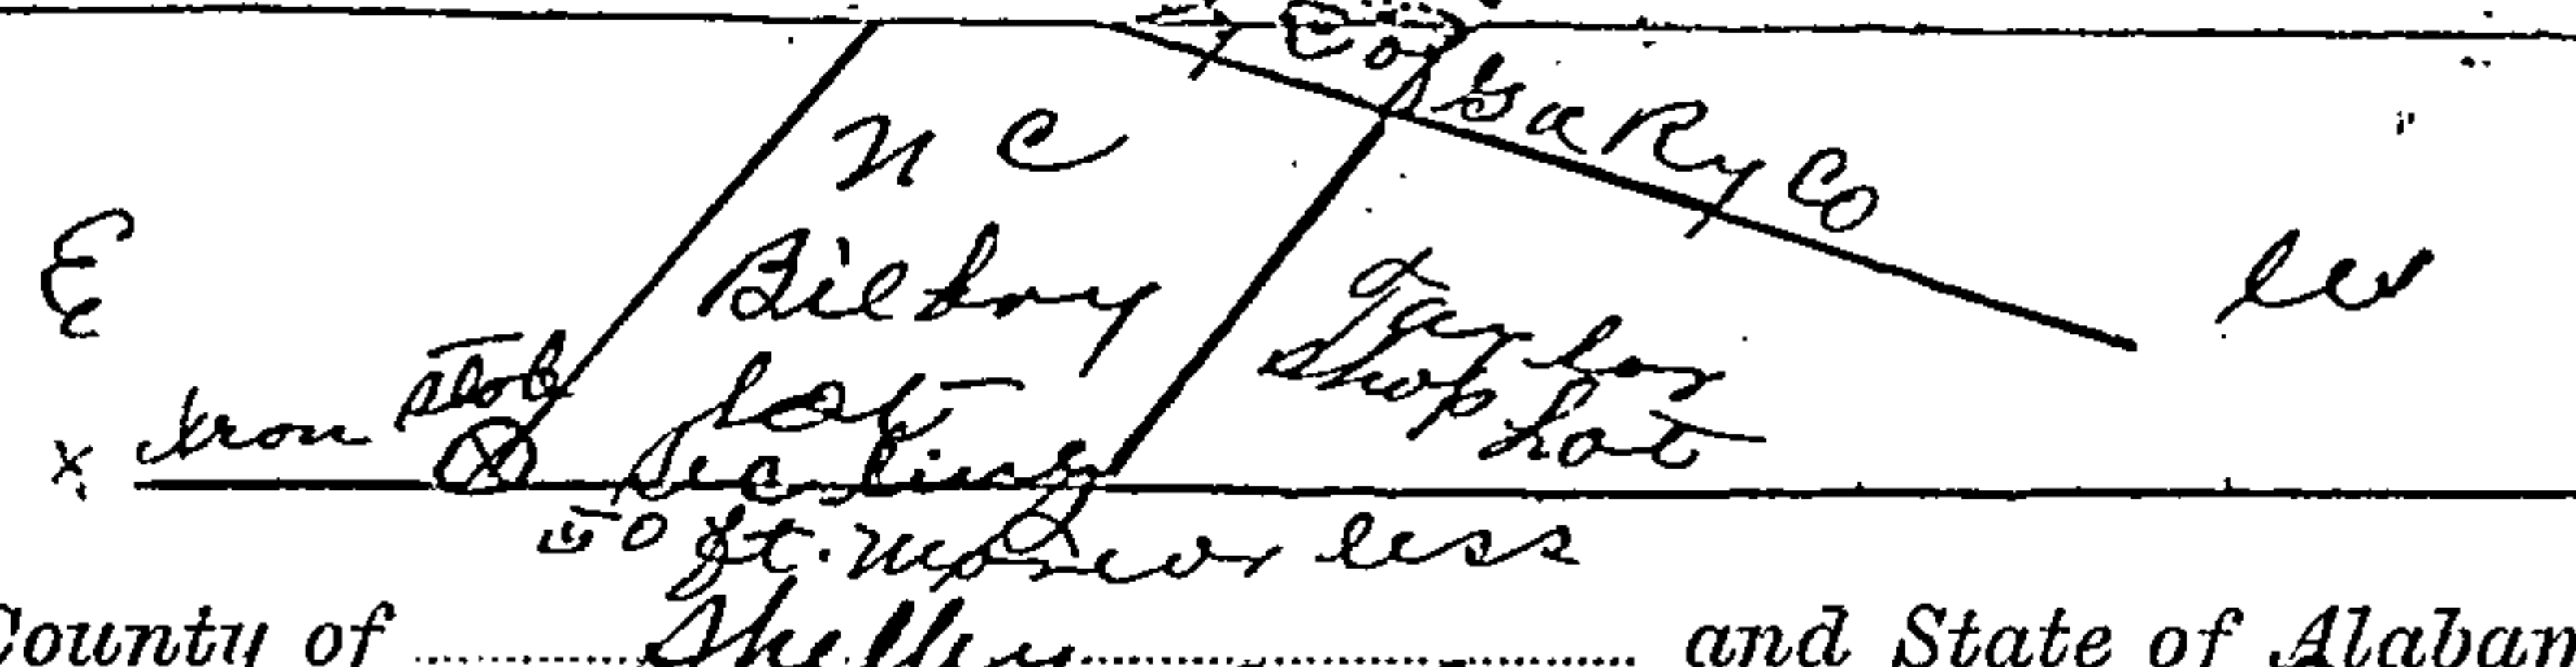 C of Ga Ry Co
N C
E
W
Bilbry
Lot
Taylor
Shop Lot
Iron Stob
x
Sec Line
50 ft. more or less
County of Shelby and State of Alabam